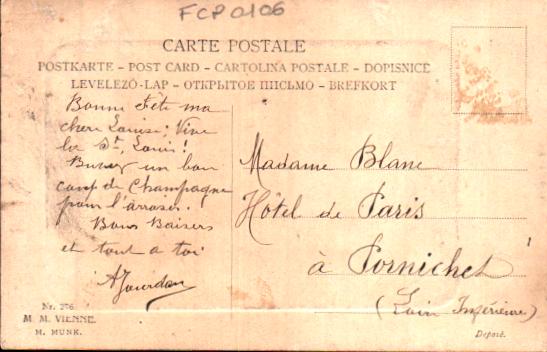 FCP 0106
CARTE POSTALE
POSTKARTE – POST CARD – CARTOLINA POSTALE – DOPISNICE
LEVELEZÖ-LAP – ОТКРЫТОЕ ПИСЬМО – BREFKORT
Bonne Fête ma
chere Louise; Vive
la St. Louis!
Buvez un bon
coup de Champagne
pour l'arroser.
Bons Baisers
et tout a toi
A Jourdan
Madame Blanc
Hôtel de Paris
à Pornichet
(Loire Inférieure)
Nr. 276
M. M. VIENNE.
M. MUNK.
Deposé.